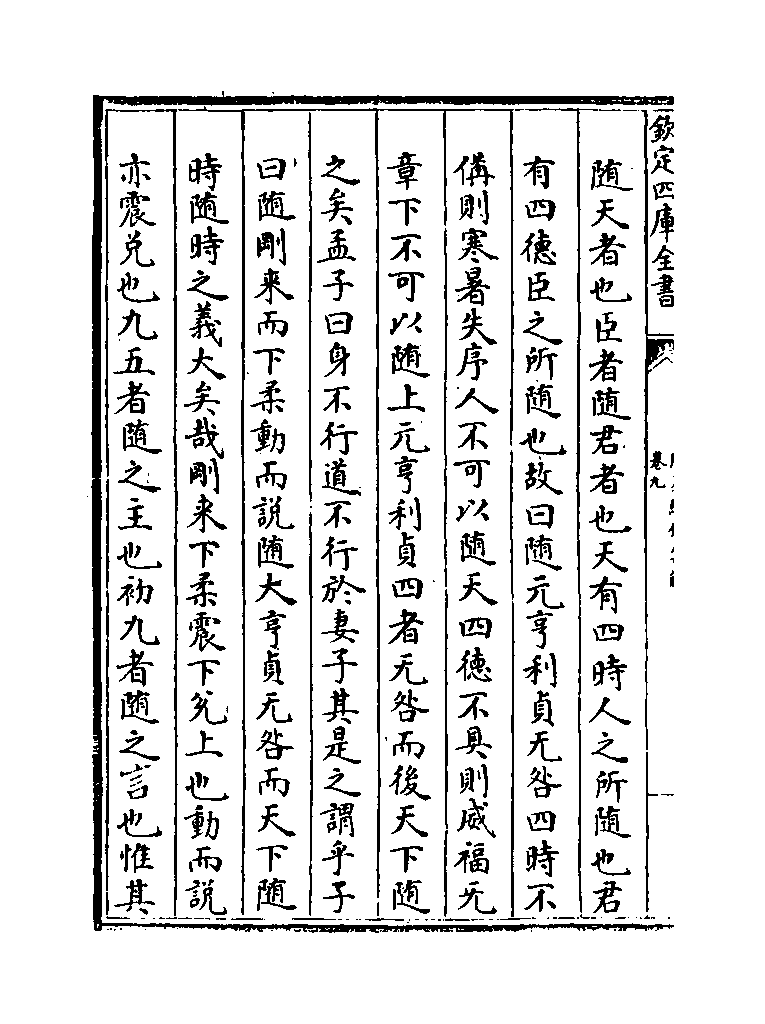 欽定四庫全書
卷九
随天者也臣者随君者也天有四時人之所随也君
有四德臣之所随也故曰随元亨利貞无咎四時不
備則寒暑失序人不可以随天四德不具則威福无
章下不可以随上元亨利貞四者无咎而後天下随
之矣孟子曰身不行道不行於妻子其是之謂乎子
曰随剛來而下柔動而説随大亨貞无咎而天下随
時随時之義大矣哉剛来下柔震下兊上也動而説
亦震兊也九五者随之主也初九者随之言也惟其